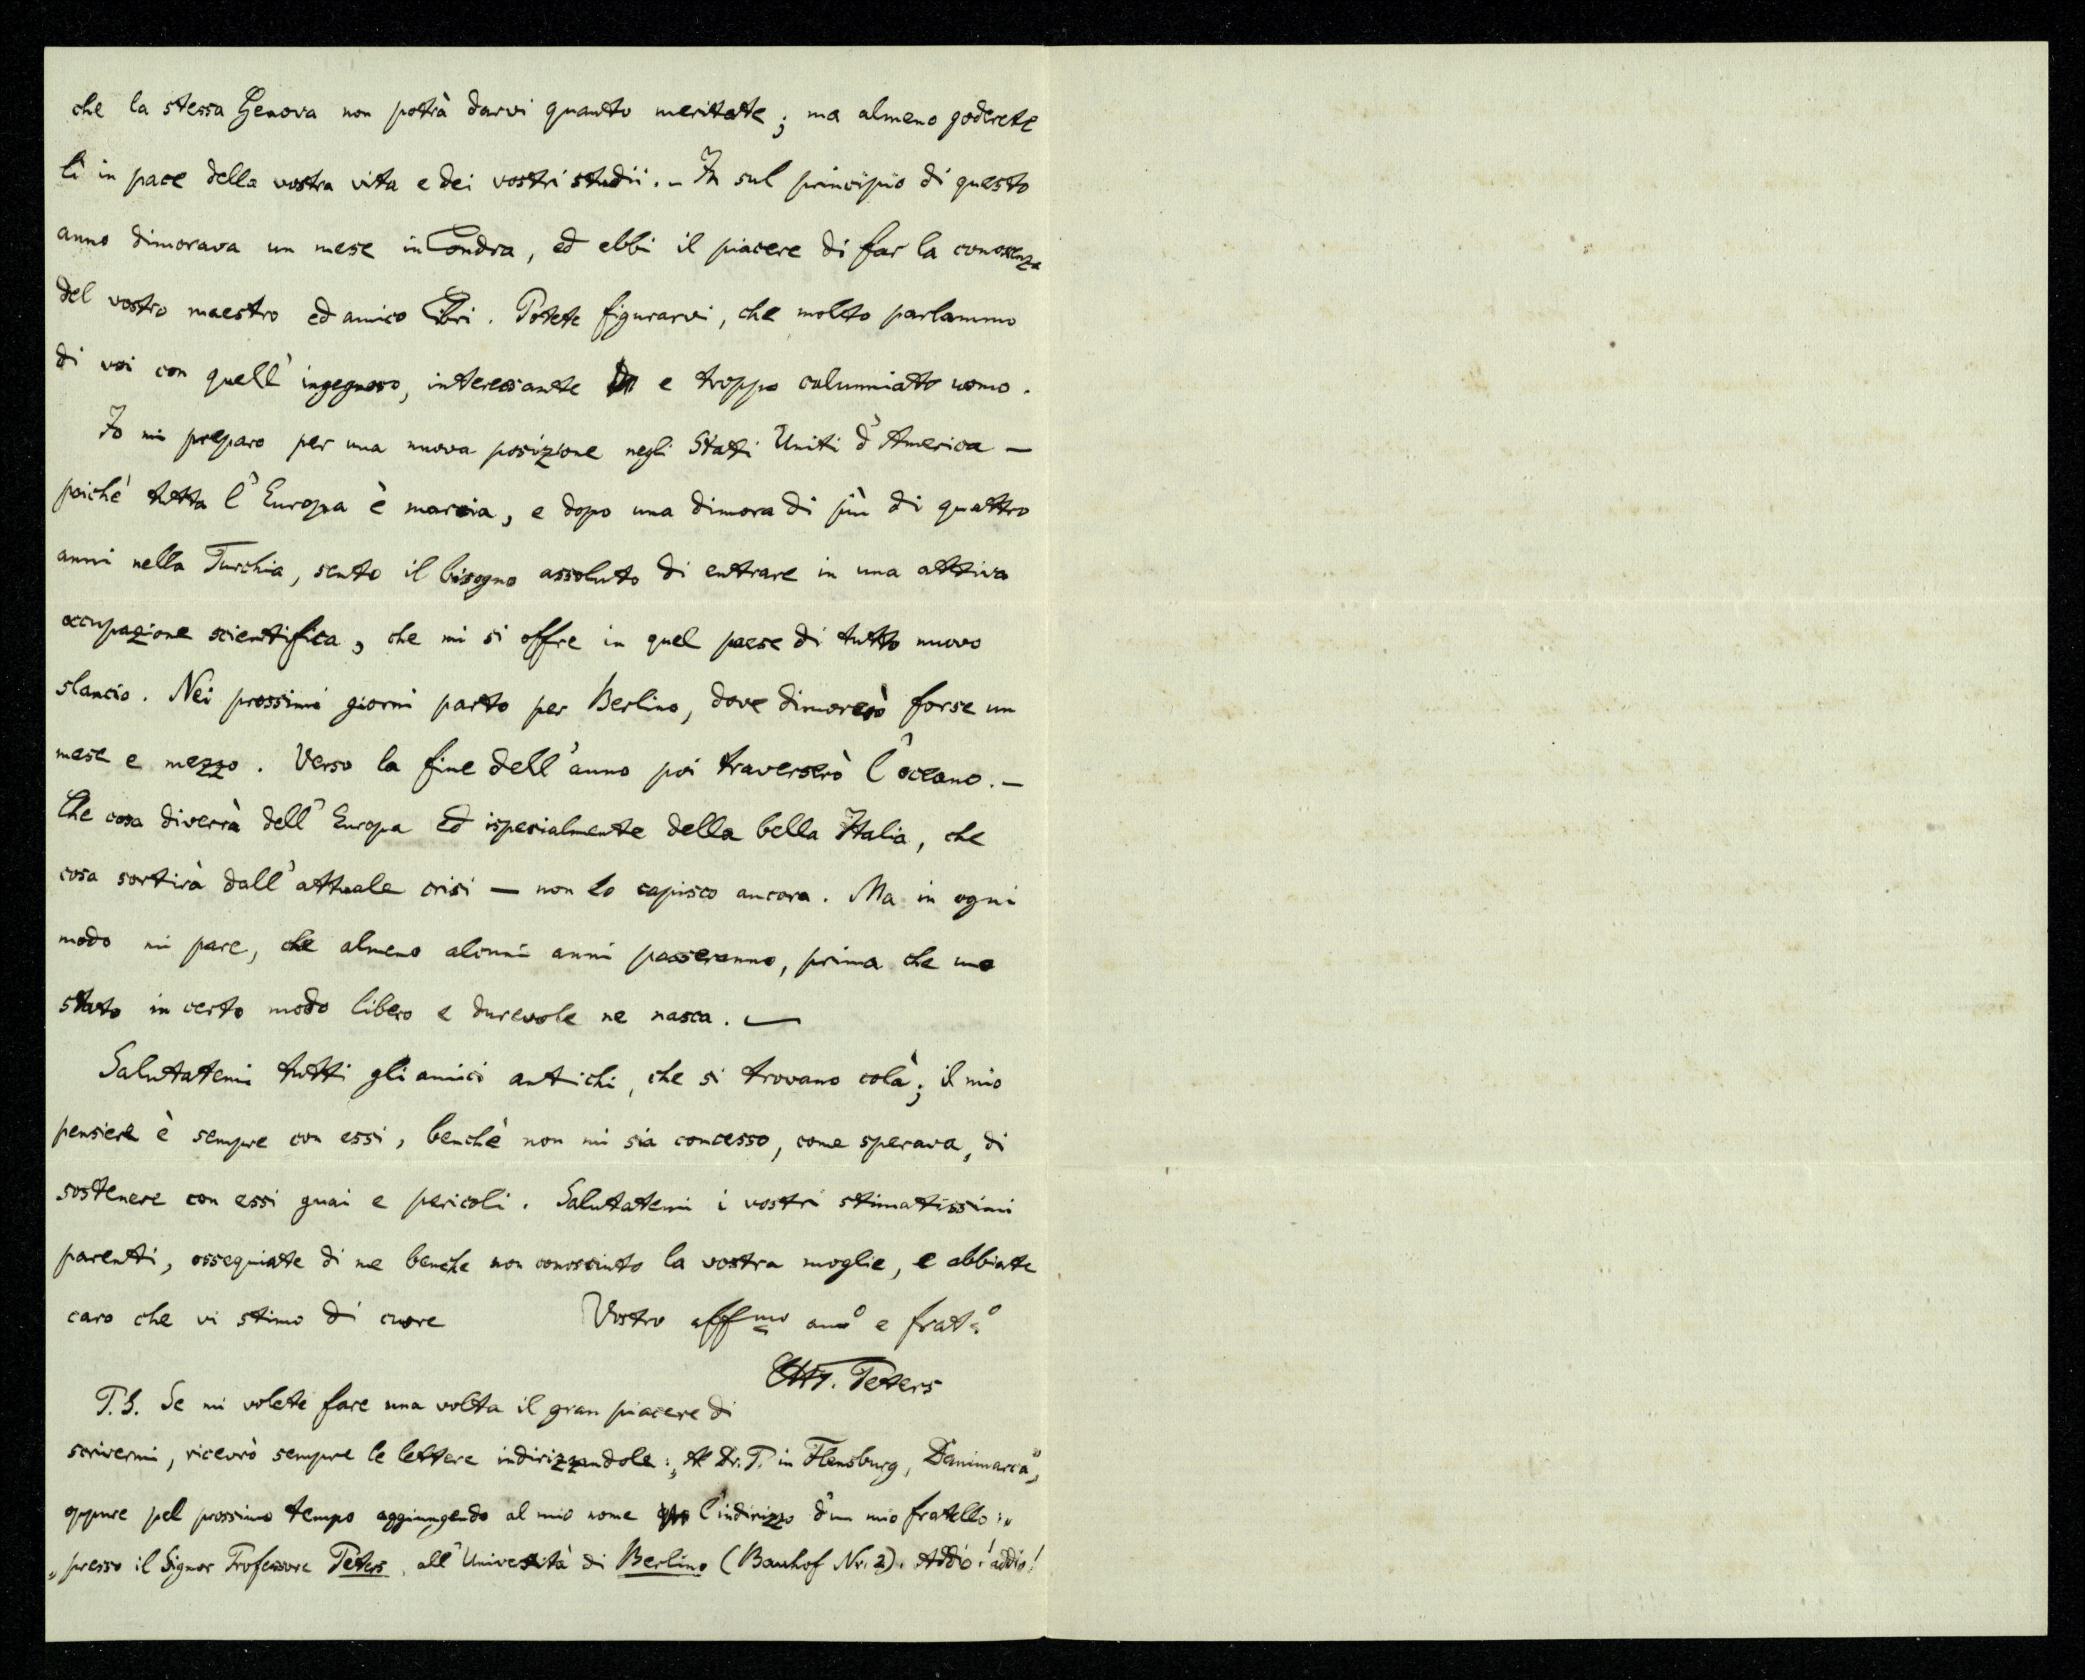 che la stessa Genova non potrà darvi quanto meritate; ma almeno goderete
lì in pace della vostra vita e dei vostri studii. – In sul principio di questo
anno dimorava un mese in Londra, ed ebbi il piacere di far la conoscenza
del vostro maestro ed amico Libri. Potete figurarvi, che molto parlammo
di voi con quell' ingegnoso, interessante e troppo calunniato uomo.
Io mi preparo per una nuova posizione negli Stati Uniti d'America —
poichè tutta l'Europa è marcia, e dopo una dimora di più di quattro
anni nella Turchia, sento il bisogno assoluto di entrare in una attiva
occupazione scientifica, che mi si offre in quel paese di tutto nuovo
slancio. Nei prossimi giorni parto per Berlino, dove dimorerò forse un
mese e mezzo. Verso la fine dell'anno poi traverserò l'oceano. —
Che cosa diverrà dell'Europa ed ispecialmente della bella Italia, che
cosa sortirà dall'attuale crisi — non lo capisco ancora. Ma in ogni
modo mi pare, che almeno alcuni anni passeranno, prima che uno
stato in certo modo libero e durevole ne nasca. —
Salutatemi tutti gli amici antichi, che si trovano colà; il mio
pensiere è sempre con essi, benchè non mi sia concesso, come sperava, di
sostenere con essi guai e pericoli. Salutatemi i vostri stimatissimi
parenti, ossequiate di me benche non conosciuto la vostra moglie, e abbiate
caro che vi stimo di cuore Vostro affmo amo e frato
CHF. Peters
P.S. Se mi volete fare una volta il gran piacere di
scrivermi, riceverò sempre le lettere indirizzandole: „Al Dr. P. in Flensburg, Danimarca",
oppure pel prossimo tempo aggiungendo al mio nome l'indirizzo d'un mio fratello:
„presso il Signor Professore Peters, all'Università di Berlino (Bauhof Nr. 2). Addio! addio!